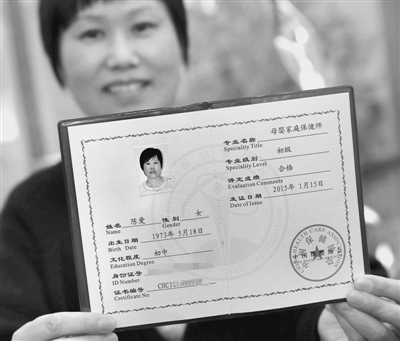 姓名 陈爱 性别 女
Name Gender
出生日期 1973年5月18日
Birth Date
文化程度 初中
Education Degree
身份证号
ID Number
证书编号
Certificate No
专业名称 母婴家庭保健师
Speciality Title
专业级别 初级
Speciality Level
评定成绩 合格
Evaluation Comments
发证日期 2015年1月15日
Date of Issue